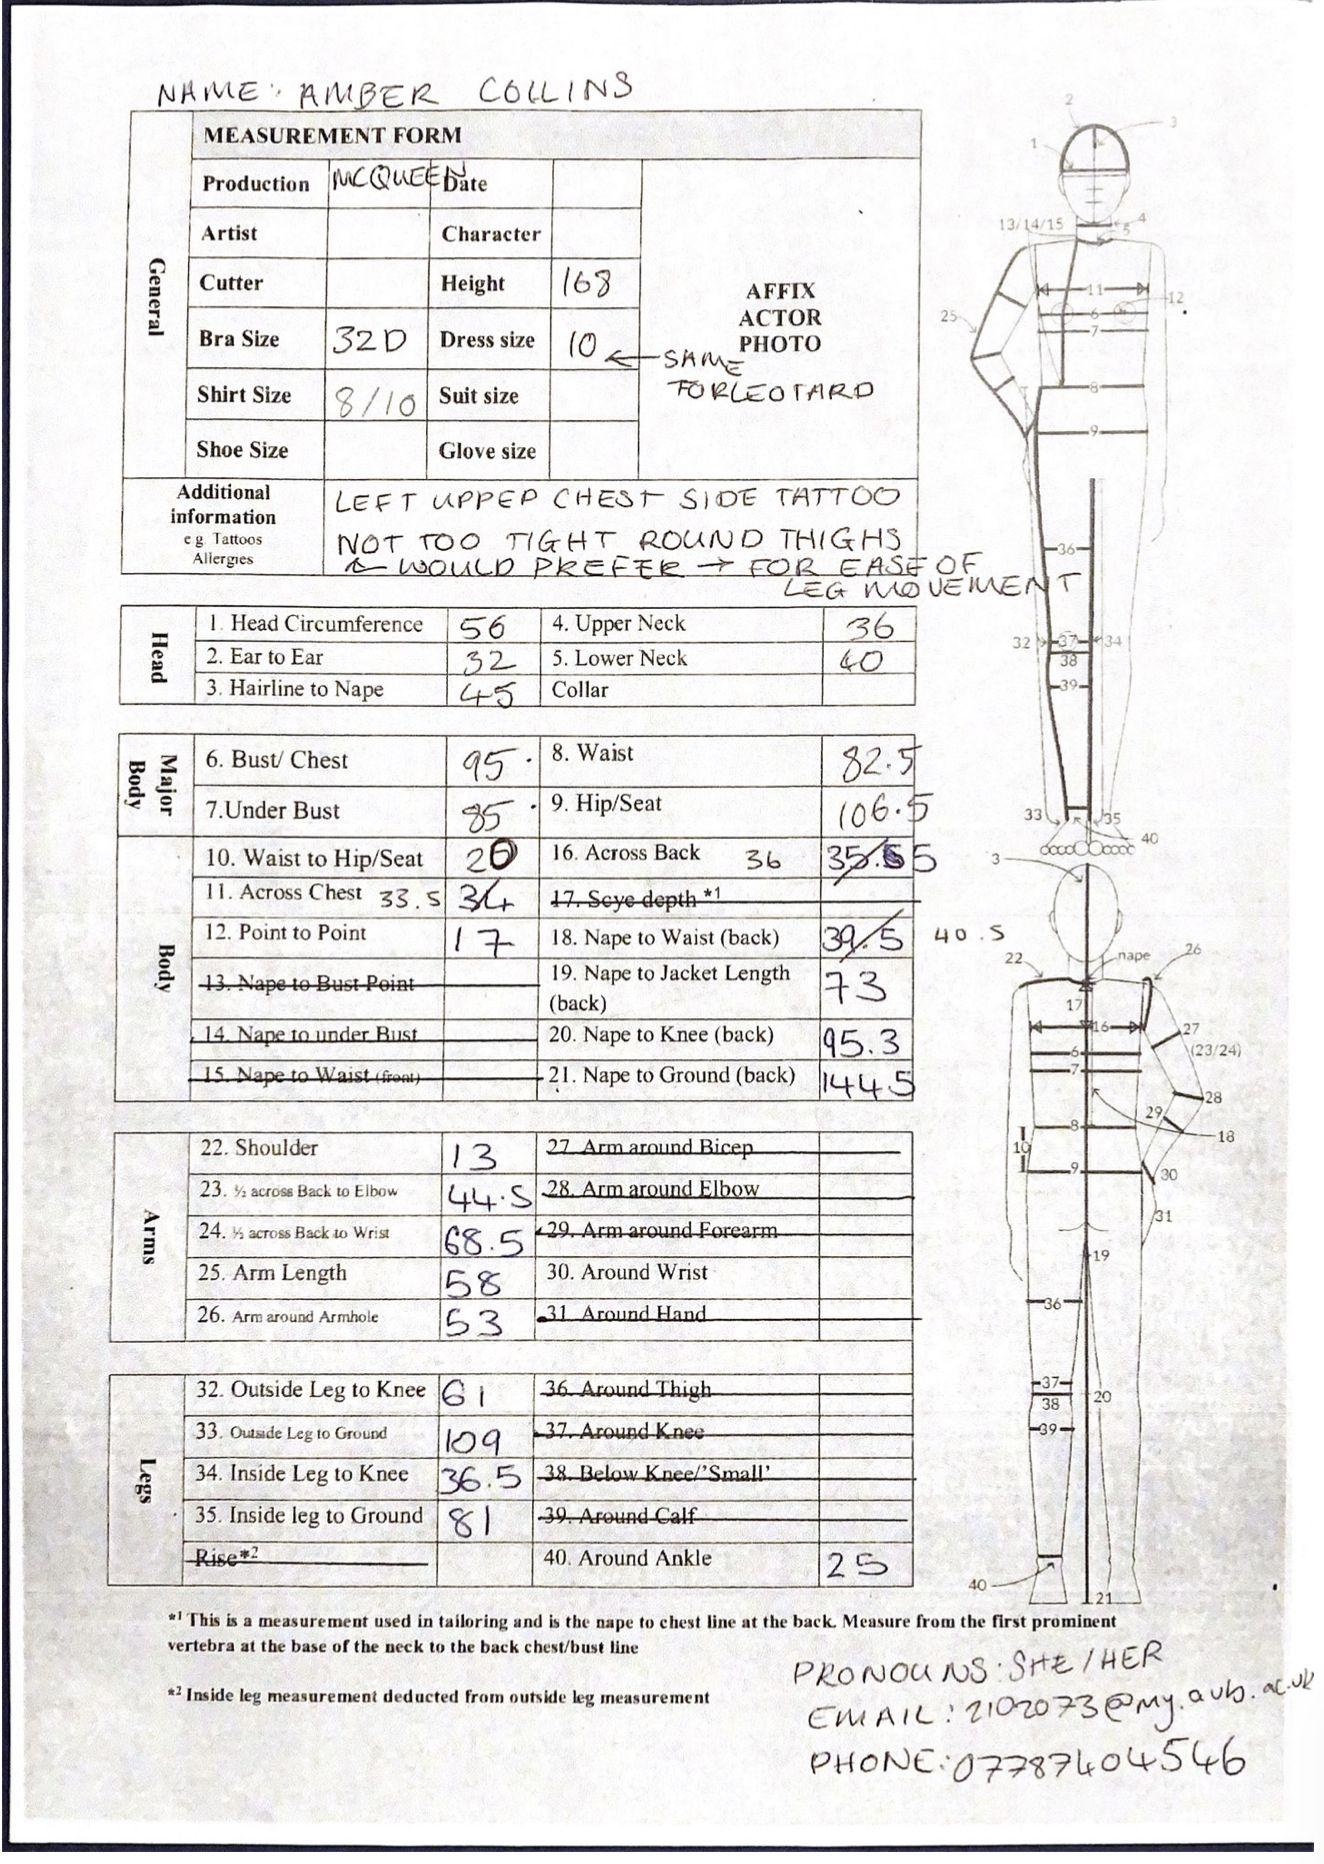 NAME: AMBER COLLINS
General
MEASUREMENT FORM
Production MCQUEEN Date
Artist Character
Cutter Height 168
AFFIX ACTOR PHOTO
Bra Size 32D Dress size 10 ← SAME FOR LEOTARD
Shirt Size 8/10 Suit size
Shoe Size Glove size
Additional information
e g. Tattoos
Allergies
LEFT UPPER CHEST SIDE TATTOO
NOT TOO TIGHT ROUND THIGHS
WOULD PREFER → FOR EASE OF
LEG MOVEMENT
Head
1. Head Circumference 56 4. Upper Neck 36
2. Ear to Ear 32 5. Lower Neck 40
3. Hairline to Nape 45 Collar
Major Body
6. Bust/ Chest 95 8. Waist 82.5
7.Under Bust 85 9. Hip/Seat 106.5
Body
10. Waist to Hip/Seat 20 16. Across Back 36 35.5 5
11. Across Chest 33.5 34 17. Scye depth *1
12. Point to Point 17 18. Nape to Waist (back) 39.5 40.5
13. Nape to Bust Point 19. Nape to Jacket Length (back) 73
14. Nape to under Bust 20. Nape to Knee (back) 95.3
15. Nape to Waist (front) 21. Nape to Ground (back) 144.5
Arms
22. Shoulder 13 27. Arm around Bicep
23. ½ across Back to Elbow 44.5 28. Arm around Elbow
24. ½ across Back to Wrist 68.5 29. Arm around Forearm
25. Arm Length 58 30. Around Wrist
26. Arm around Armhole 53 31. Around Hand
Legs
32. Outside Leg to Knee 61 36. Around Thigh
33. Outside Leg to Ground 109 37. Around Knee
34. Inside Leg to Knee 36.5 38. Below Knee/'Small'
35. Inside leg to Ground 81 39. Around Calf
Rise*2 40. Around Ankle 25
*1 This is a measurement used in tailoring and is the nape to chest line at the back. Measure from the first prominent
vertebra at the base of the neck to the back chest/bust line
*2 Inside leg measurement deducted from outside leg measurement
PRONOUNS: SHE/HER
EMAIL: 2102073@my.aub.ac.uk
PHONE: 07787404546
2
3
1
4
13/14/15
5
11
12
25
6
7
8
9
36
32
37
34
38
39
33
35
40
3
22
nape
26
17
16
27
(23/24)
6
7
28
29
8
18
10
9
30
31
19
36
37
38
20
39
40
21